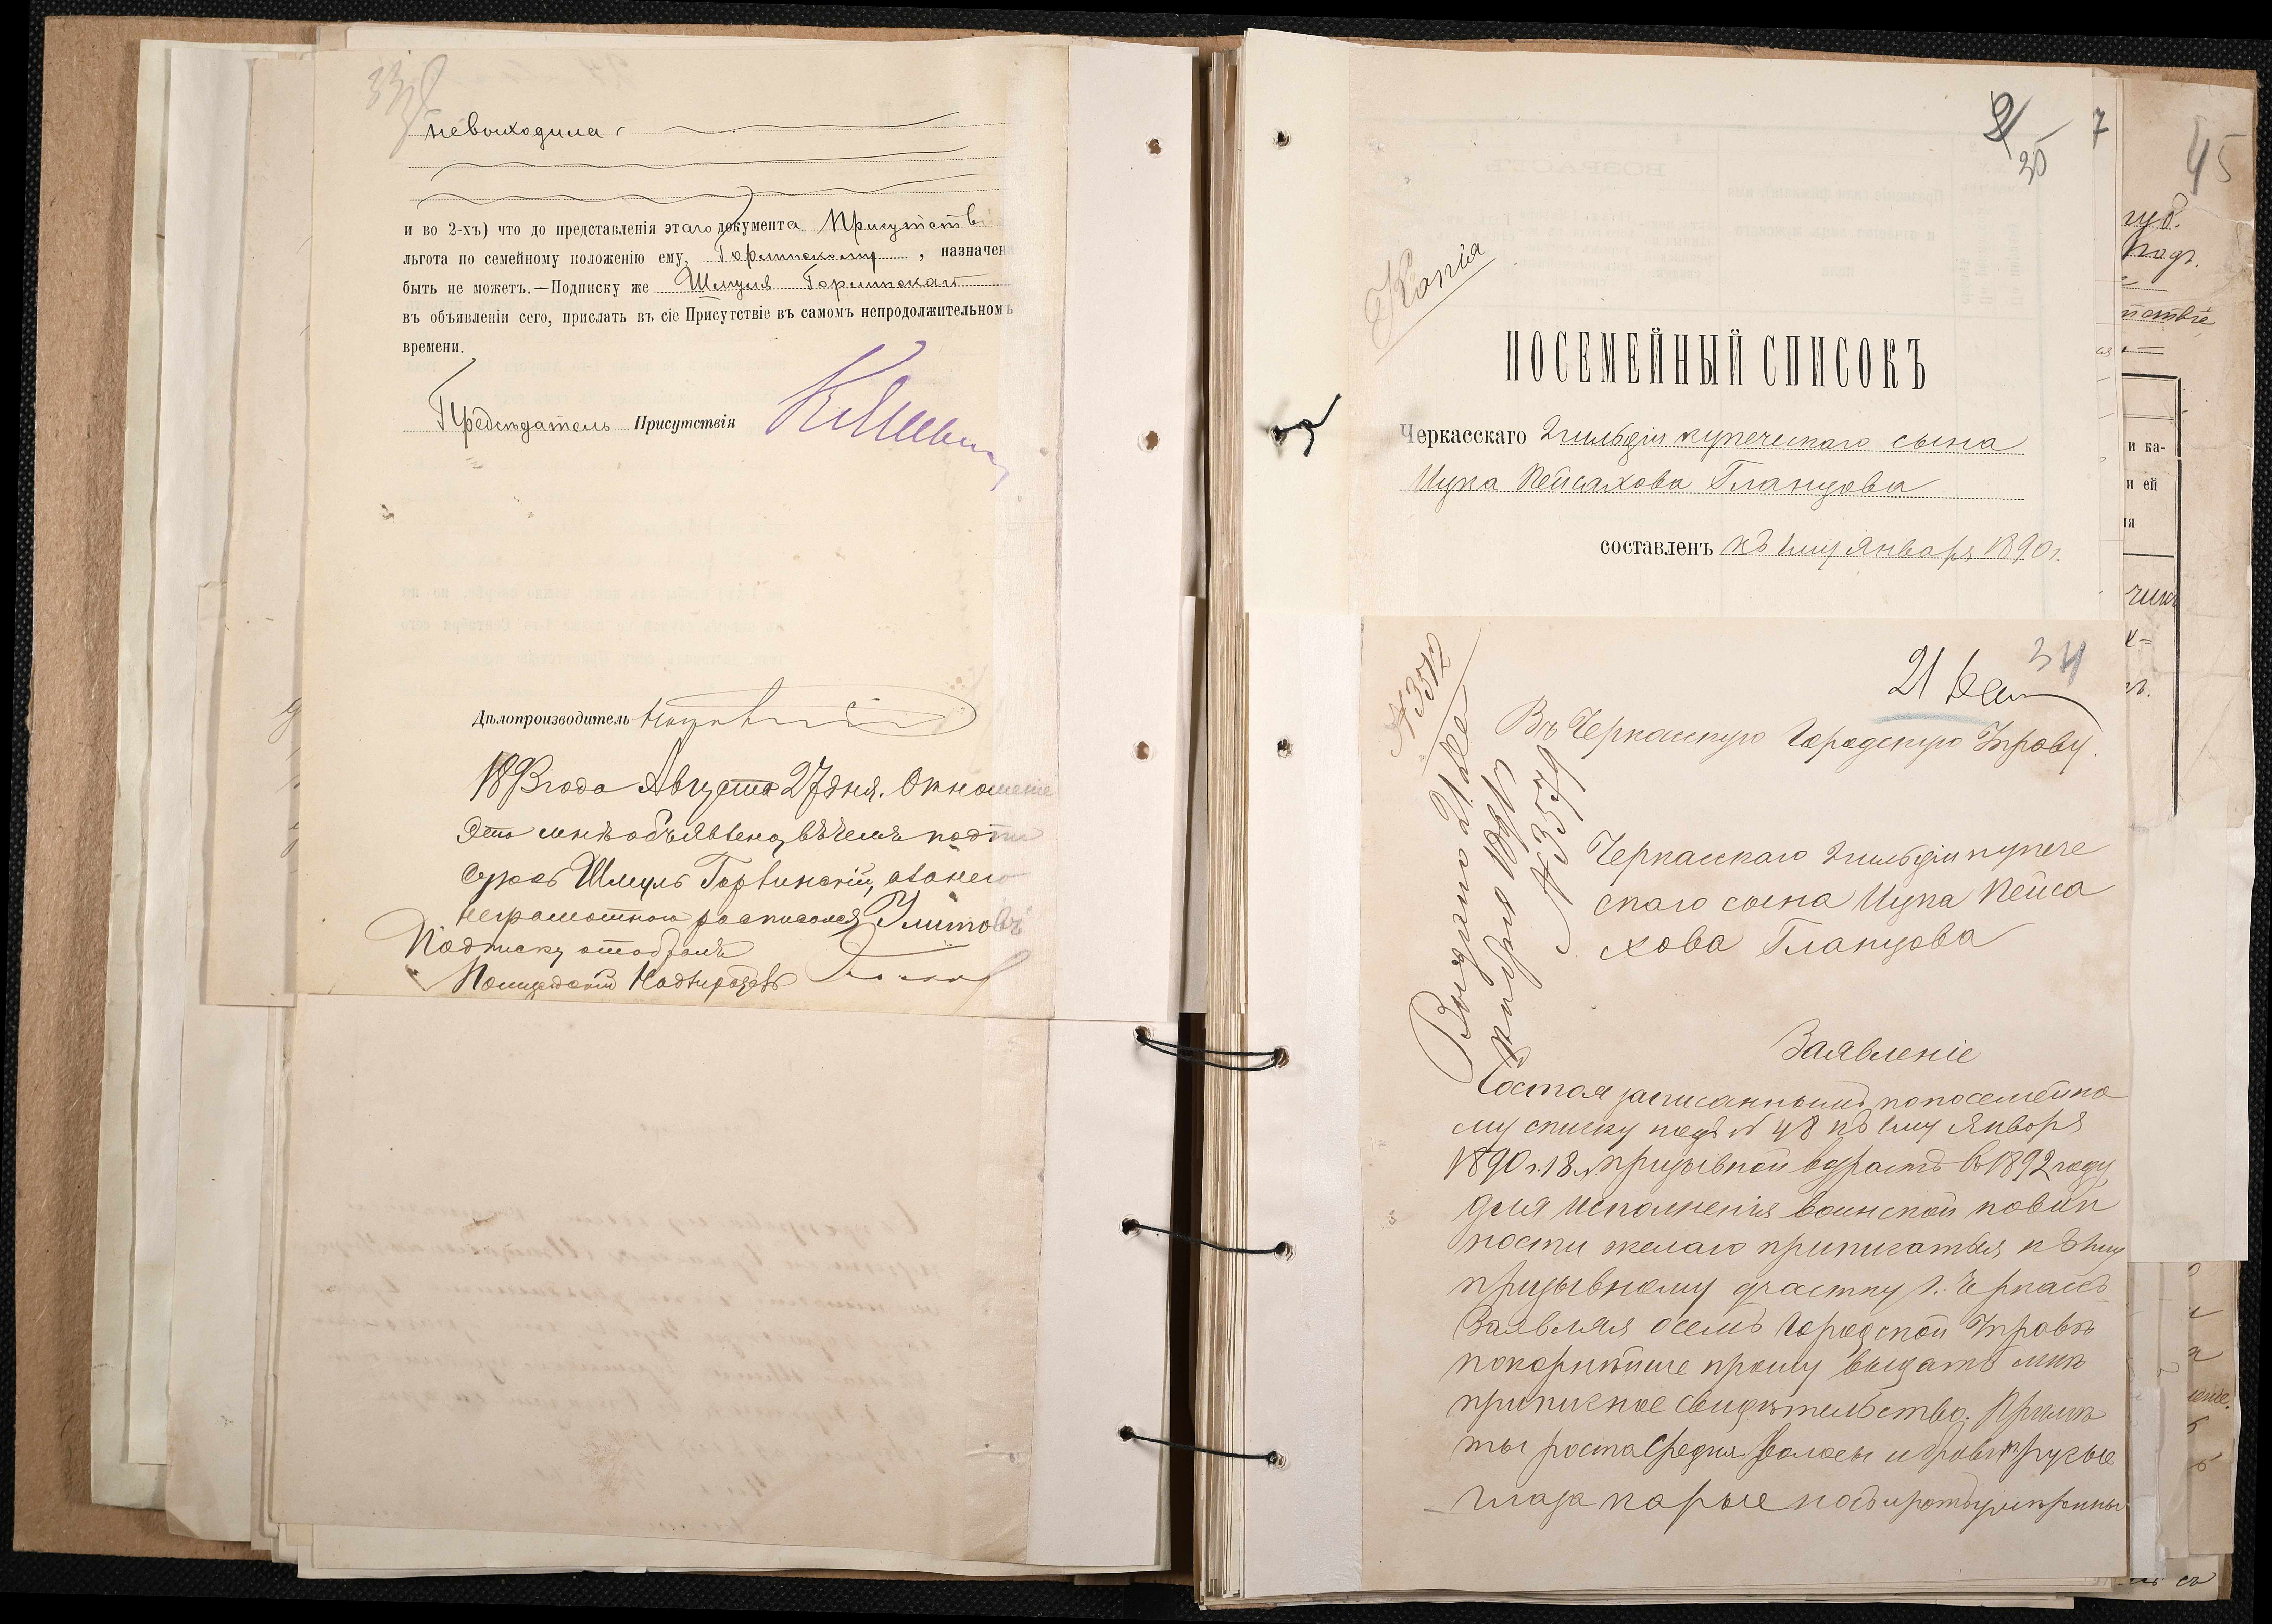 33
невыходила
и во 2-хъ) что до представленія этаго документа Присутстві
льгота по семейному положенію ему, Горлинскому, назначена
быть не можетъ.—Подписку же Шмуля Горлинскаго
въ объявленіи сего, прислать въ сіе Присутствіе въ самомъ непродолжительномъ
времени.
Предсѣдатель Присутствія
Дѣлопроизводитель
1893 года Августа 27 дня. Отношеніе
это мнѣ объявлено, въ чемъ подпи
суюсь Шмуль Горлинскій, а за него
неграмотного росписался
Подписку отобралъ
Полицейскій Надзиратель
35
7
Копія
ПОСЕМЕЙНЫЙ СПИСОКЪ
Черкасскаго 2 гильдіи купеческаго сына
Ицка Пейсахова Гланцова
составленъ къ 1му Января 1890 г.
№ 3512
34
21 Дек
Въ Черкасскую Городскую Управу.
Выдано 21 Де
кабря 1891 г
№ 3579
Черкасскаго 2 гильдіи купече
скаго сына Ицка Пейса
хова Гланцова
Заявленіе
Состоя записаннымъ по посемейно
му списку подъ № 48 къ 1му Января
1890 г. 18 л. призывной возрастъ въ 1892 году
для исполненія воинской повин
ности желаю приписаться къ 1му
призывному участку г. Черкасъ
Заявляя о семъ Городской Управѣ
покорнѣйше прошу выдать мнѣ
приписное свидѣтельство. Примѣ
ты роста средня волосы и брови русые
глаза карые носъ и ротъ умѣренны
45
губ.
и ка-
и ей
ія